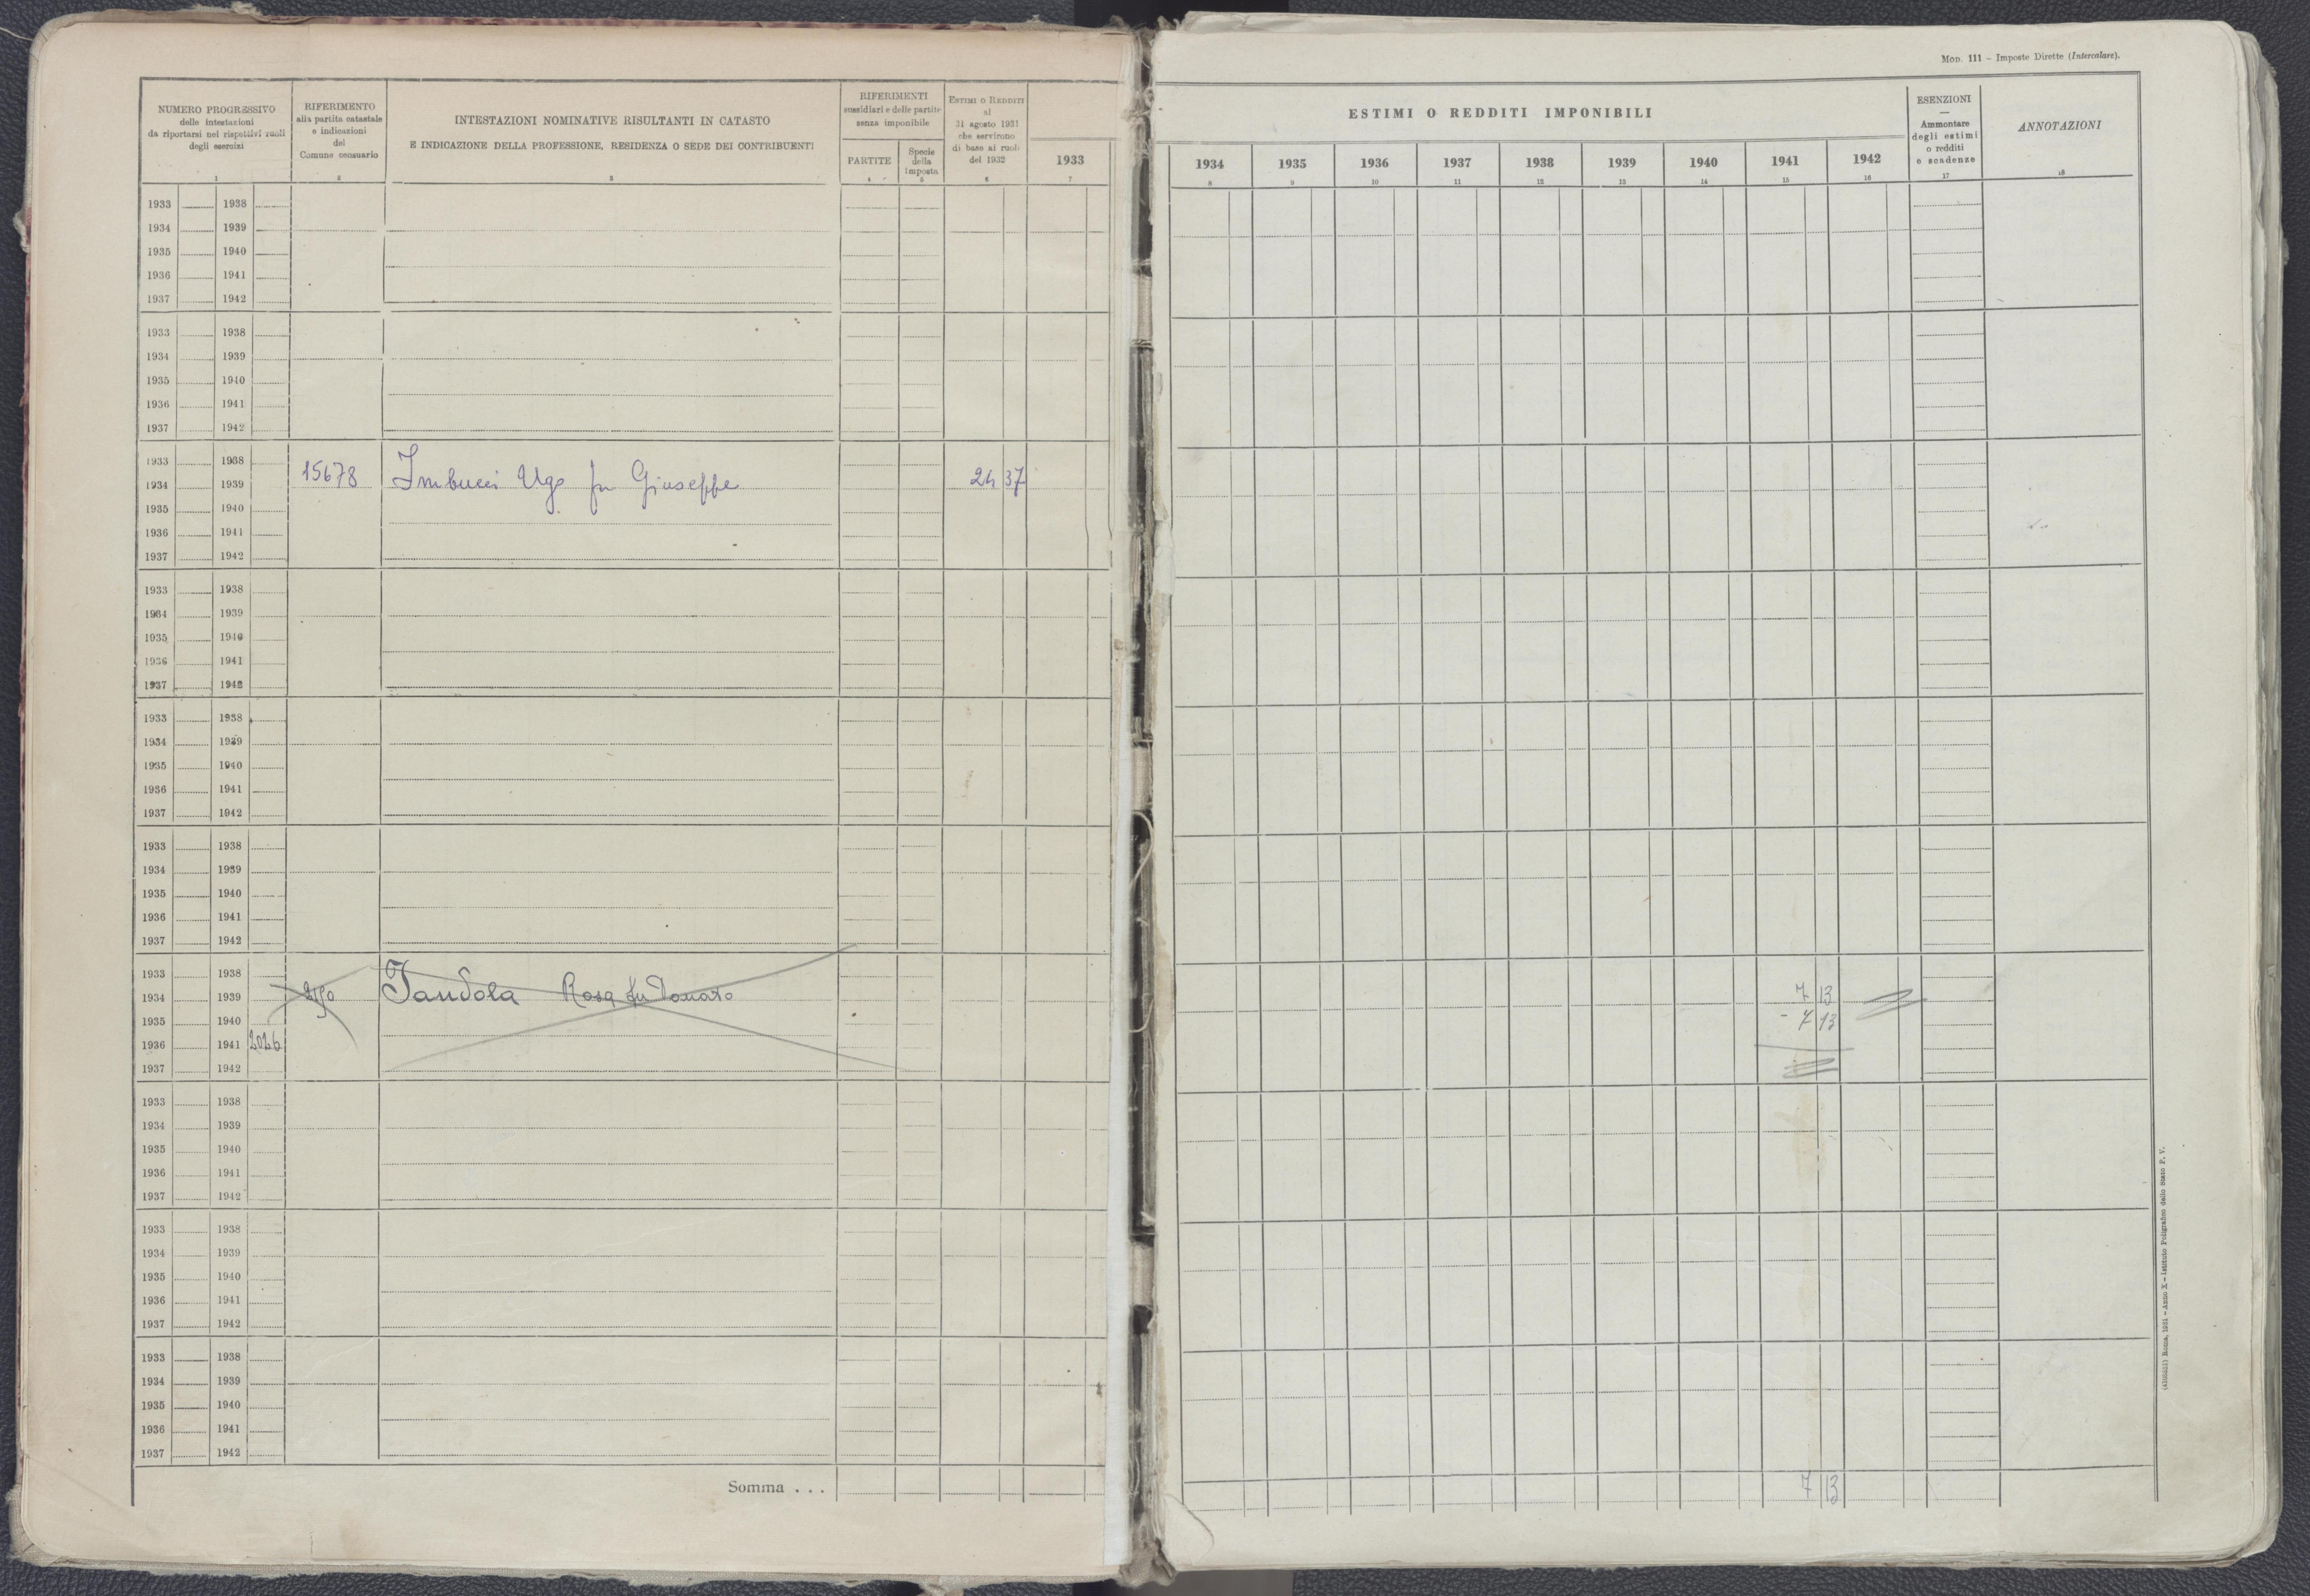 MOD. 111 – Imposte Dirette (Intercalare).
NUMERO PROGRESSIVO
delle intestazioni
da riportarsi nei rispettivi ruoli
degli esercizi
1
RIFERIMENTO
alla partita catastale
e indicazioni
del
Comune censuario
2
INTESTAZIONI NOMINATIVE RISULTANTI IN CATASTO
E INDICAZIONE DELLA PROFESSIONE, RESIDENZA O SEDE DEI CONTRIBUENTI
3
RIFERIMENTI
sussidiari e delle partite
senza imponibile
PARTITE
4
Specie
della
imposta
5
ESTIMI O REDDITI
al
31 agosto 1931
che servirono
di base ai ruoli
del 1932
6
1933
7
ESTIMI O REDDITI IMPONIBILI
1934 1935 1936 1937 1938 1939 1940 1941 1942
8 9 10 11 12 13 14 15 16
ESENZIONI
—
Ammontare
degli estimi
o redditi
e scadenze
17
ANNOTAZIONI
18
1933 1938
1934 1939
1935 1940
1936 1941
1937 1942
1933 1938
1934 1939
1935 1940
1936 1941
1937 1942
1933 1938
1934 1939 15678 Imbucci Ugo fu Giuseppe 24 37
1935 1940
1936 1941
1937 1942
1933 1938
1934 1939
1935 1940
1936 1941
1937 1942
1933 1938
1934 1939
1935 1940
1936 1941
1937 1942
1933 1938
1934 1939
1935 1940
1936 1941
1937 1942
1933 1938
1934 1939 Iandola Rosa fu Donato 7 13
1935 1940 - 7 13
1936 1941 2026
1937 1942
1933 1938
1934 1939
1935 1940
1936 1941
1937 1942
1933 1938
1934 1939
1935 1940
1936 1941
1937 1942
1933 1938
1934 1939
1935 1940
1936 1941
1937 1942
Somma . . . 7 13
Roma, 1931 – Anno X – Istituto Poligrafico dello Stato P. V.